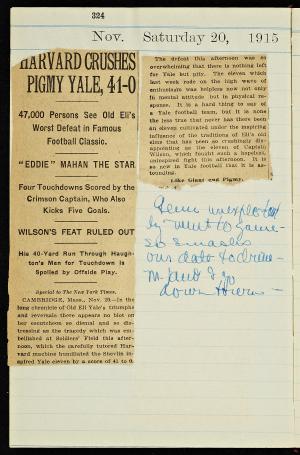 324
Nov. Saturday 20, 1915
HARVARD CRUSHES
PIGMY YALE, 41-0
47,000 Persons See Old Eli's
Worst Defeat in Famous
Football Classic.
"EDDIE" MAHAN THE STAR
Four Touchdowns Scored by the
Crimson Captain, Who Also
Kicks Five Goals.
WILSON'S FEAT RULED OUT
His 40-Yard Run Through Haugh-
ton's Men for Touchdown is
Spoiled by Offside Play.
Special to The New York Times.
CAMBRIDGE, Mass., Nov. 20.—In the
long chronicle of Old Eli Yale's triumphs
and reversals there appears no blot on
her escutcheon so dismal and so dis-
tressing as the tragedy which was em-
bellished at Soldiers' Field this after-
noon, which the carefully tutored Har-
vard machine humiliated the Shevlin in-
spired Yale eleven by a score of 41 to 0.
The defeat this afternoon was so
overwhelming that there is nothing left
for Yale but pity. The eleven which
last week rode on the high wave of
enthusiasm was helpless now not only
in mental attitude but in physical re-
sponse. It is a hard thing to say of
a Yale football team, but it is none
the less true that never has there been
an eleven cultivated under the inspiring
influence of the traditions of Old Eli's
that has been so crushingly dis-
appointing as the eleven of Captain
Wilson, which fought such a hopeless,
uninspired fight this afternoon. It is
so new in Yale football that it is as-
tounding.
Like Giant and Pigmy.
unexpected
ly went to game
so smashes
our date to dine
and I go
down town